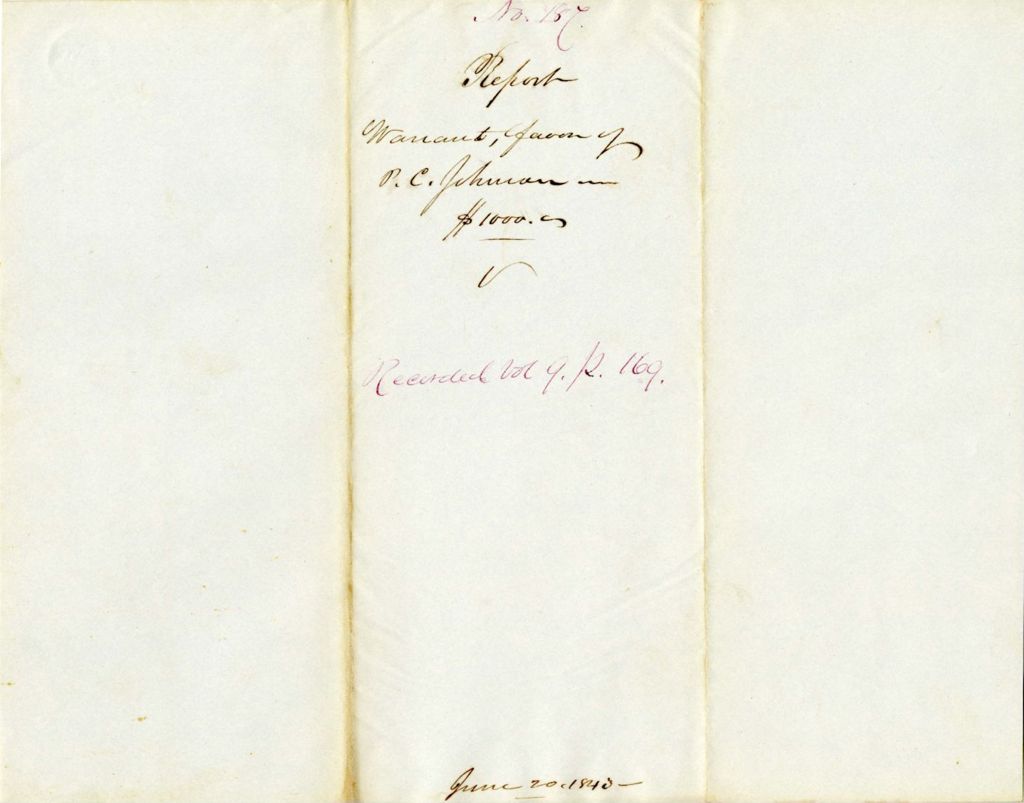 No. 187
Report
Warrant, favor of
P. C. Johnson —
$1000.00
Recorded Vol 9. p. 169.
June 20. 1843 —